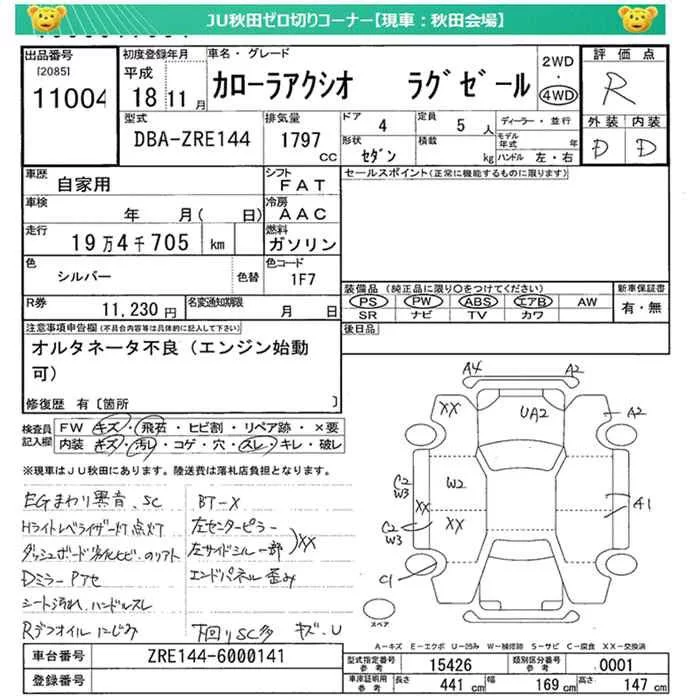 JU秋田ゼロ切りコーナー【現車：秋田会場】
出品番号 初度登録年月 車名・グレード 2WD 評価点
[2085] 平成 ・
11004 18 11月 カローラアクシオ ラグゼール 4WD R
型式 排気量 ドア 定員 ディーラー・並行 外装 内装
DBA-ZRE144 1797 CC 4 5人 モデル年式 年 D D
形状 セダン 積載 kg ハンドル 左・右
車歴 自家用 シフト FAT セールスポイント(正常に機能するものに限ります)
車検 年 月( 日) 冷房 AAC
走行 19万4千705 km 燃料 ガソリン
色 シルバー 色替 色コード 1F7
装備品 (純正品に限り〇をつけてください) 新車保証書
R券 11,230円 名変通知期限 月 日 PS PW ABS エアB AW 有・無
SR ナビ TV カワ
注意事項申告欄(不具合内容等は具体的に記入して下さい) 後日品
オルタネータ不良（エンジン始動
可）
修復歴 有〔箇所 〕
検査員 FW キズ・飛石・ヒビ割・リペア跡・×要
記入欄 内装 キズ・汚レ・コゲ・穴・スレ・キレ・破レ
※現車はJU秋田にあります。陸送費は落札店負担となります。
EGまわり異音、SC BT-X
Hライトレベライザー灯点灯 左センターピラー
ダッシュボード劣化ヒビ、のリアト 左サイドシル一部 )XX
Dミラー Pアセ エンドパネル歪み
シート汚れ、ハンドルスレ
Rデフオイルにじみ 下回りSC多 キズ、U
A4 A2
XX UA2 A2
C2 W3 W2
XX A1
C2 W3 XX
C1
スペア
A−キズ E−エクボ U−凹み W−補修跡 S−サビ C−腐食 XX−交換済
車台番号 ZRE144-6000141 型式指定番号 参考 15426 類別区分番号 参考 0001
登録番号 車庫証明用 参考 長さ 441 cm 幅 169 cm 高さ 147 cm